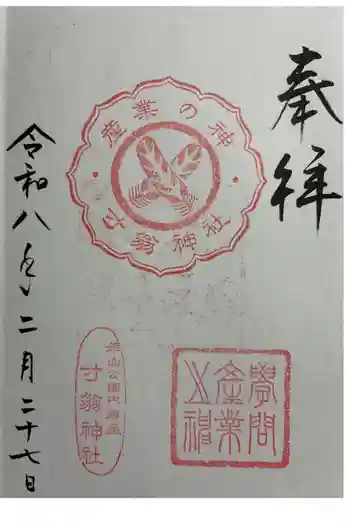 奉拝
産業の神
寸翁神社
学問
産業
之神
姫山公園内鎮座
寸翁神社
令和八年二月二十七日